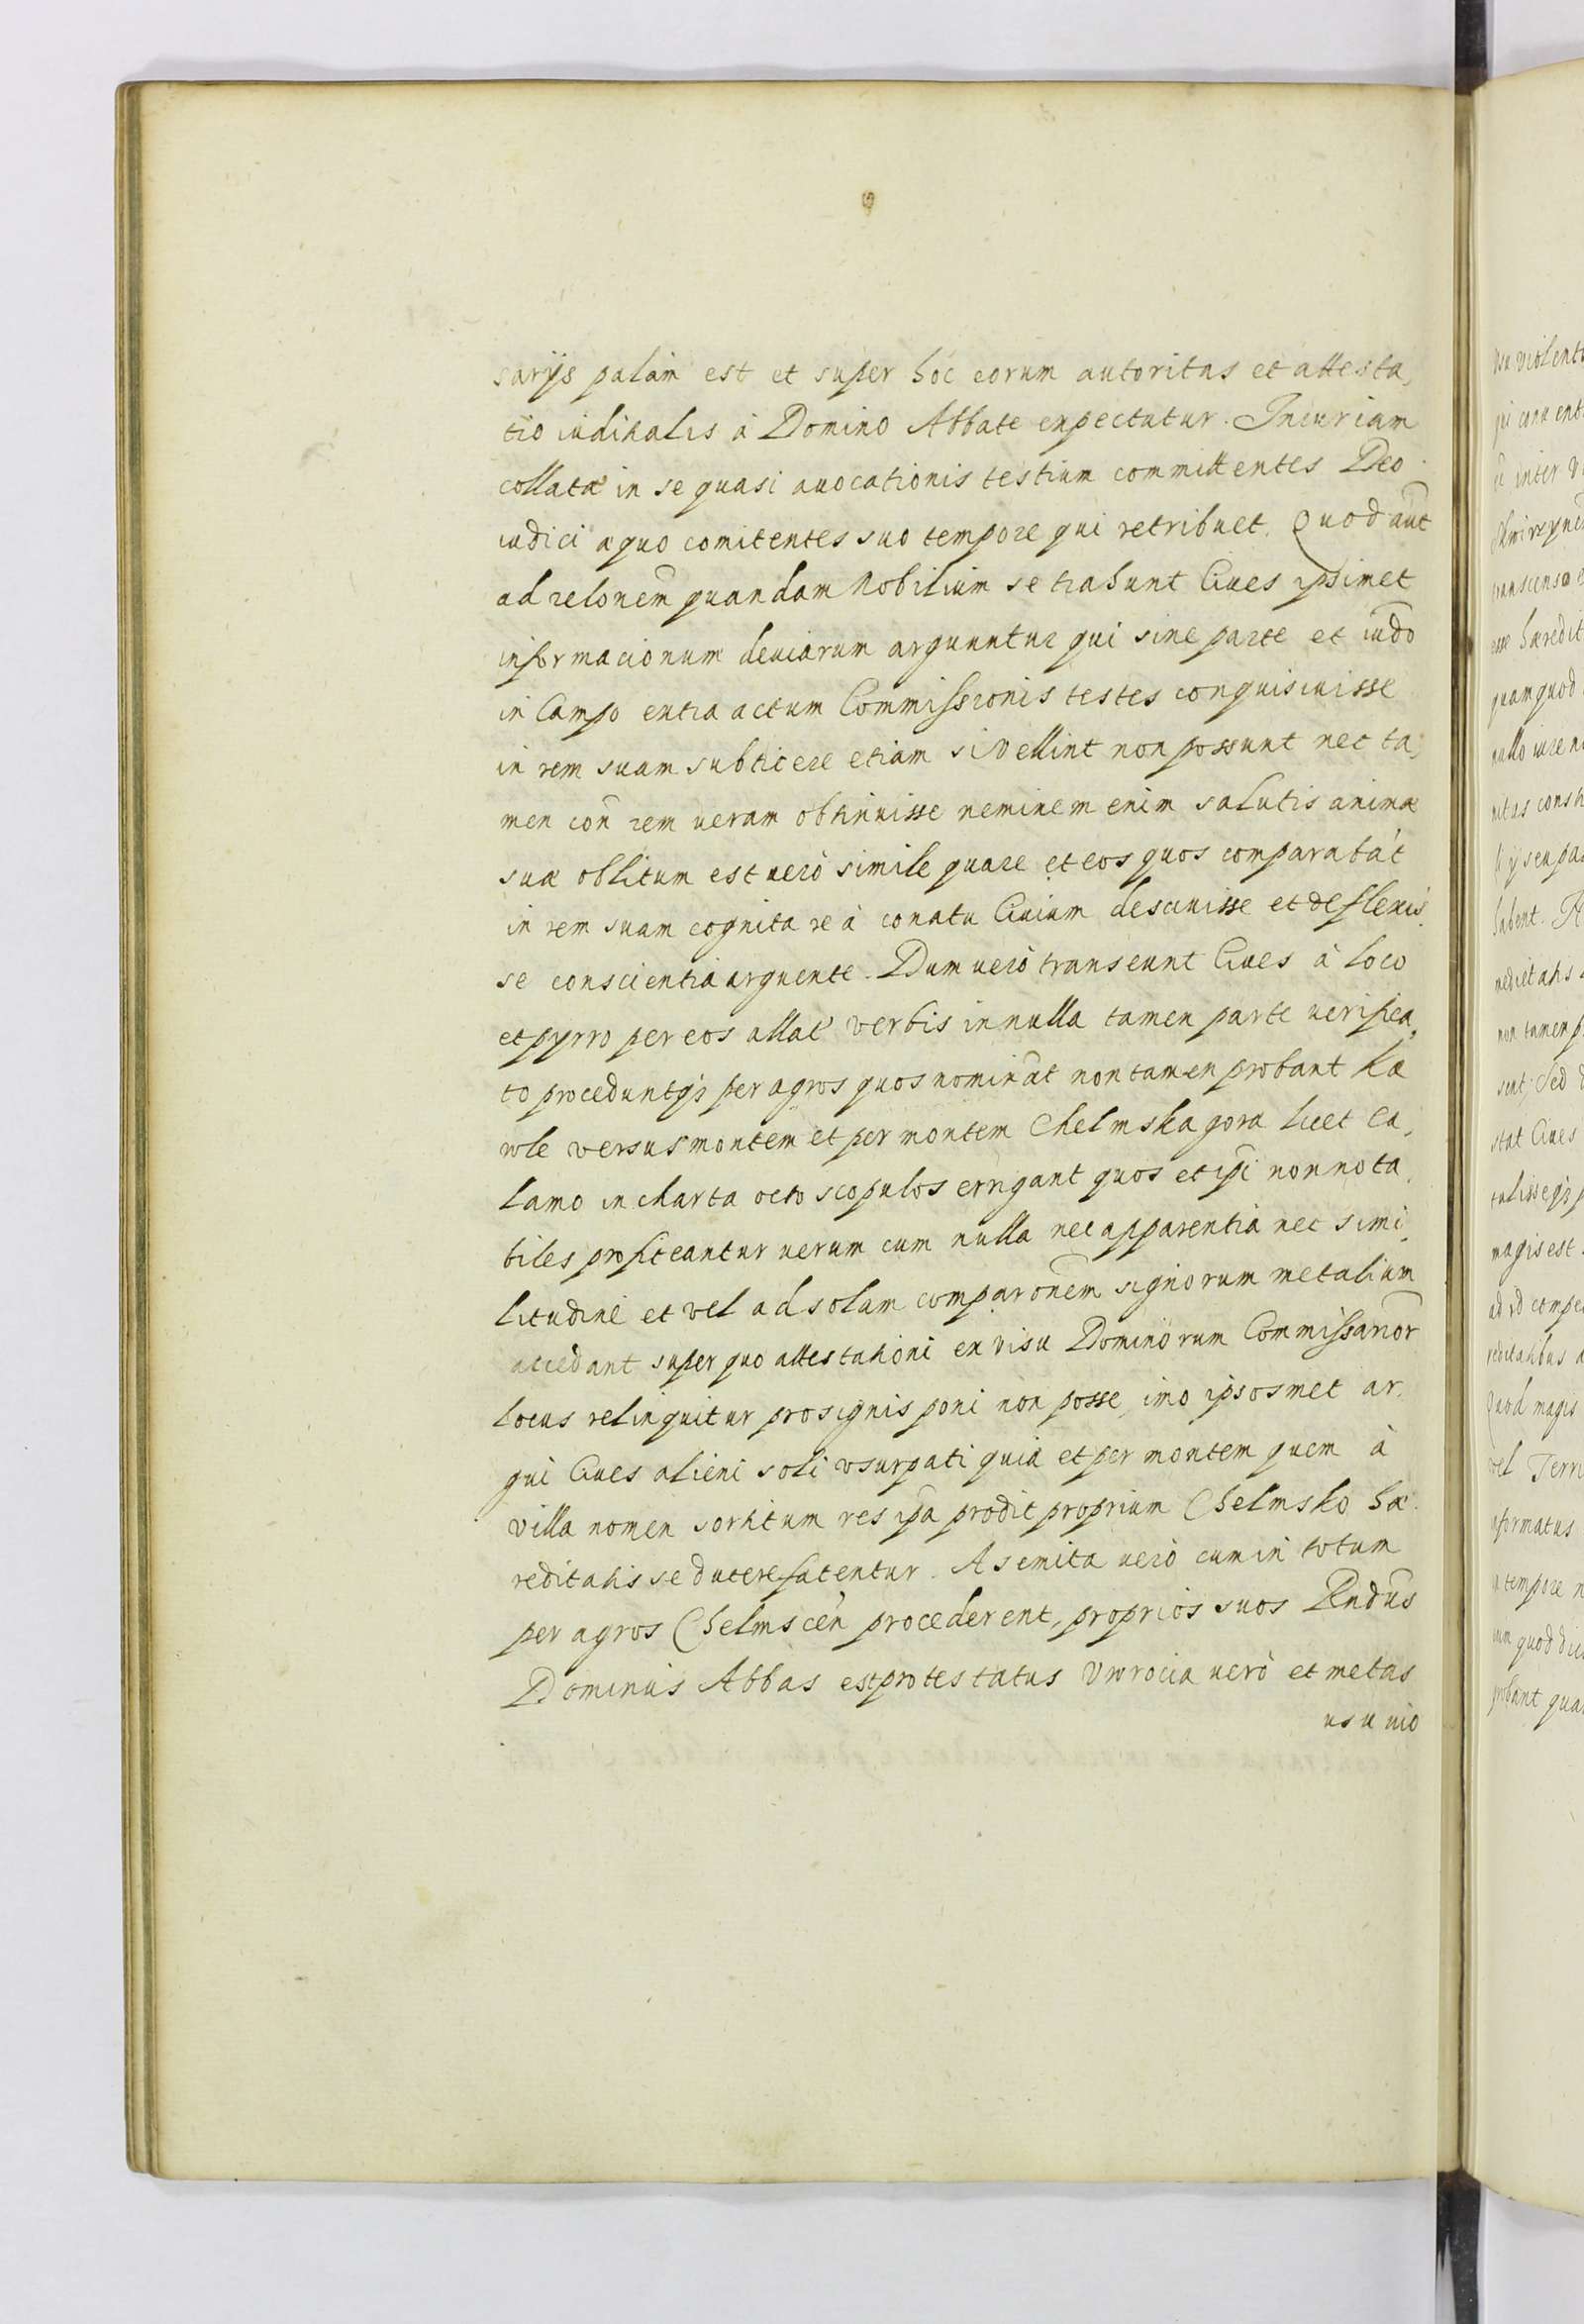 sarijs palam est et super hoc eorum autoritas et attesta,
tio iuditialis à Domino Abbate expectatur. Incuriam
collatæ in se quasi auocationis testium committentes Deo
iudici æquo comitentes suo tempore qui retribuet. Quod aut̃
ad relonem̃ quandam Nobilium se trahunt Ciues ipsimet
informacionum deuiarum arguuntur qui sine parte et iudo
in Campo extra actum Commissionis testes conquisiuisse
in rem suam subticere etiam si vellint non possunt nec ta,
men con̄ rem ueram obtinuisse neminem enim salutis animæ
suæ oblitum est uerò simile quare et eos quos comparabãt
in rem suam cognita re à conatu Ciuium desciuisse et deflexis,
se conscientia arguente. Dum uerò transeunt Ciues à loco
et pyrro per eos allat verbis in nulla tamen parte uerifica,
to proceduntq3 per agros quos nominãt non tamen probant Kæ
role versus montem et per montem Chelmska gora licet Ca,
lamo in charta octo scopulos errigant quos et ip̃i non nota,
biles profiteantur uerum cum nulla nec apparentia nec simi,
litudine et vel ad solam comparonem̃ signorum metalium
accedant super quo attestationi ex visu Dominorum Commissarior̃
locus relinquitur pro signis poni non posse, imo ipsosmet ar,
gui Ciues alieni soli vsurpati quia et per montem quem à
villa nomen sortitum res ip̃a prodit proprium Chelmsko hæ,
reditatis se ducere fatentur. A semita uerò cum in totum
per agros Chelmscen̄ procederent, proprios suos Rndus̃
Dominus Abbas est protestatus Vwrocia uerò et metas
usu uio
nu violentu
qui conuent
inter
transcenso
esse hæredit
quam quod
nullo iure
habent.
medietatis
non tamen
sent, Sed
stat Ciues
magis est
reditatibus
Quod magis
vel Terri
nformatus
tempore
quod dic
probant qua